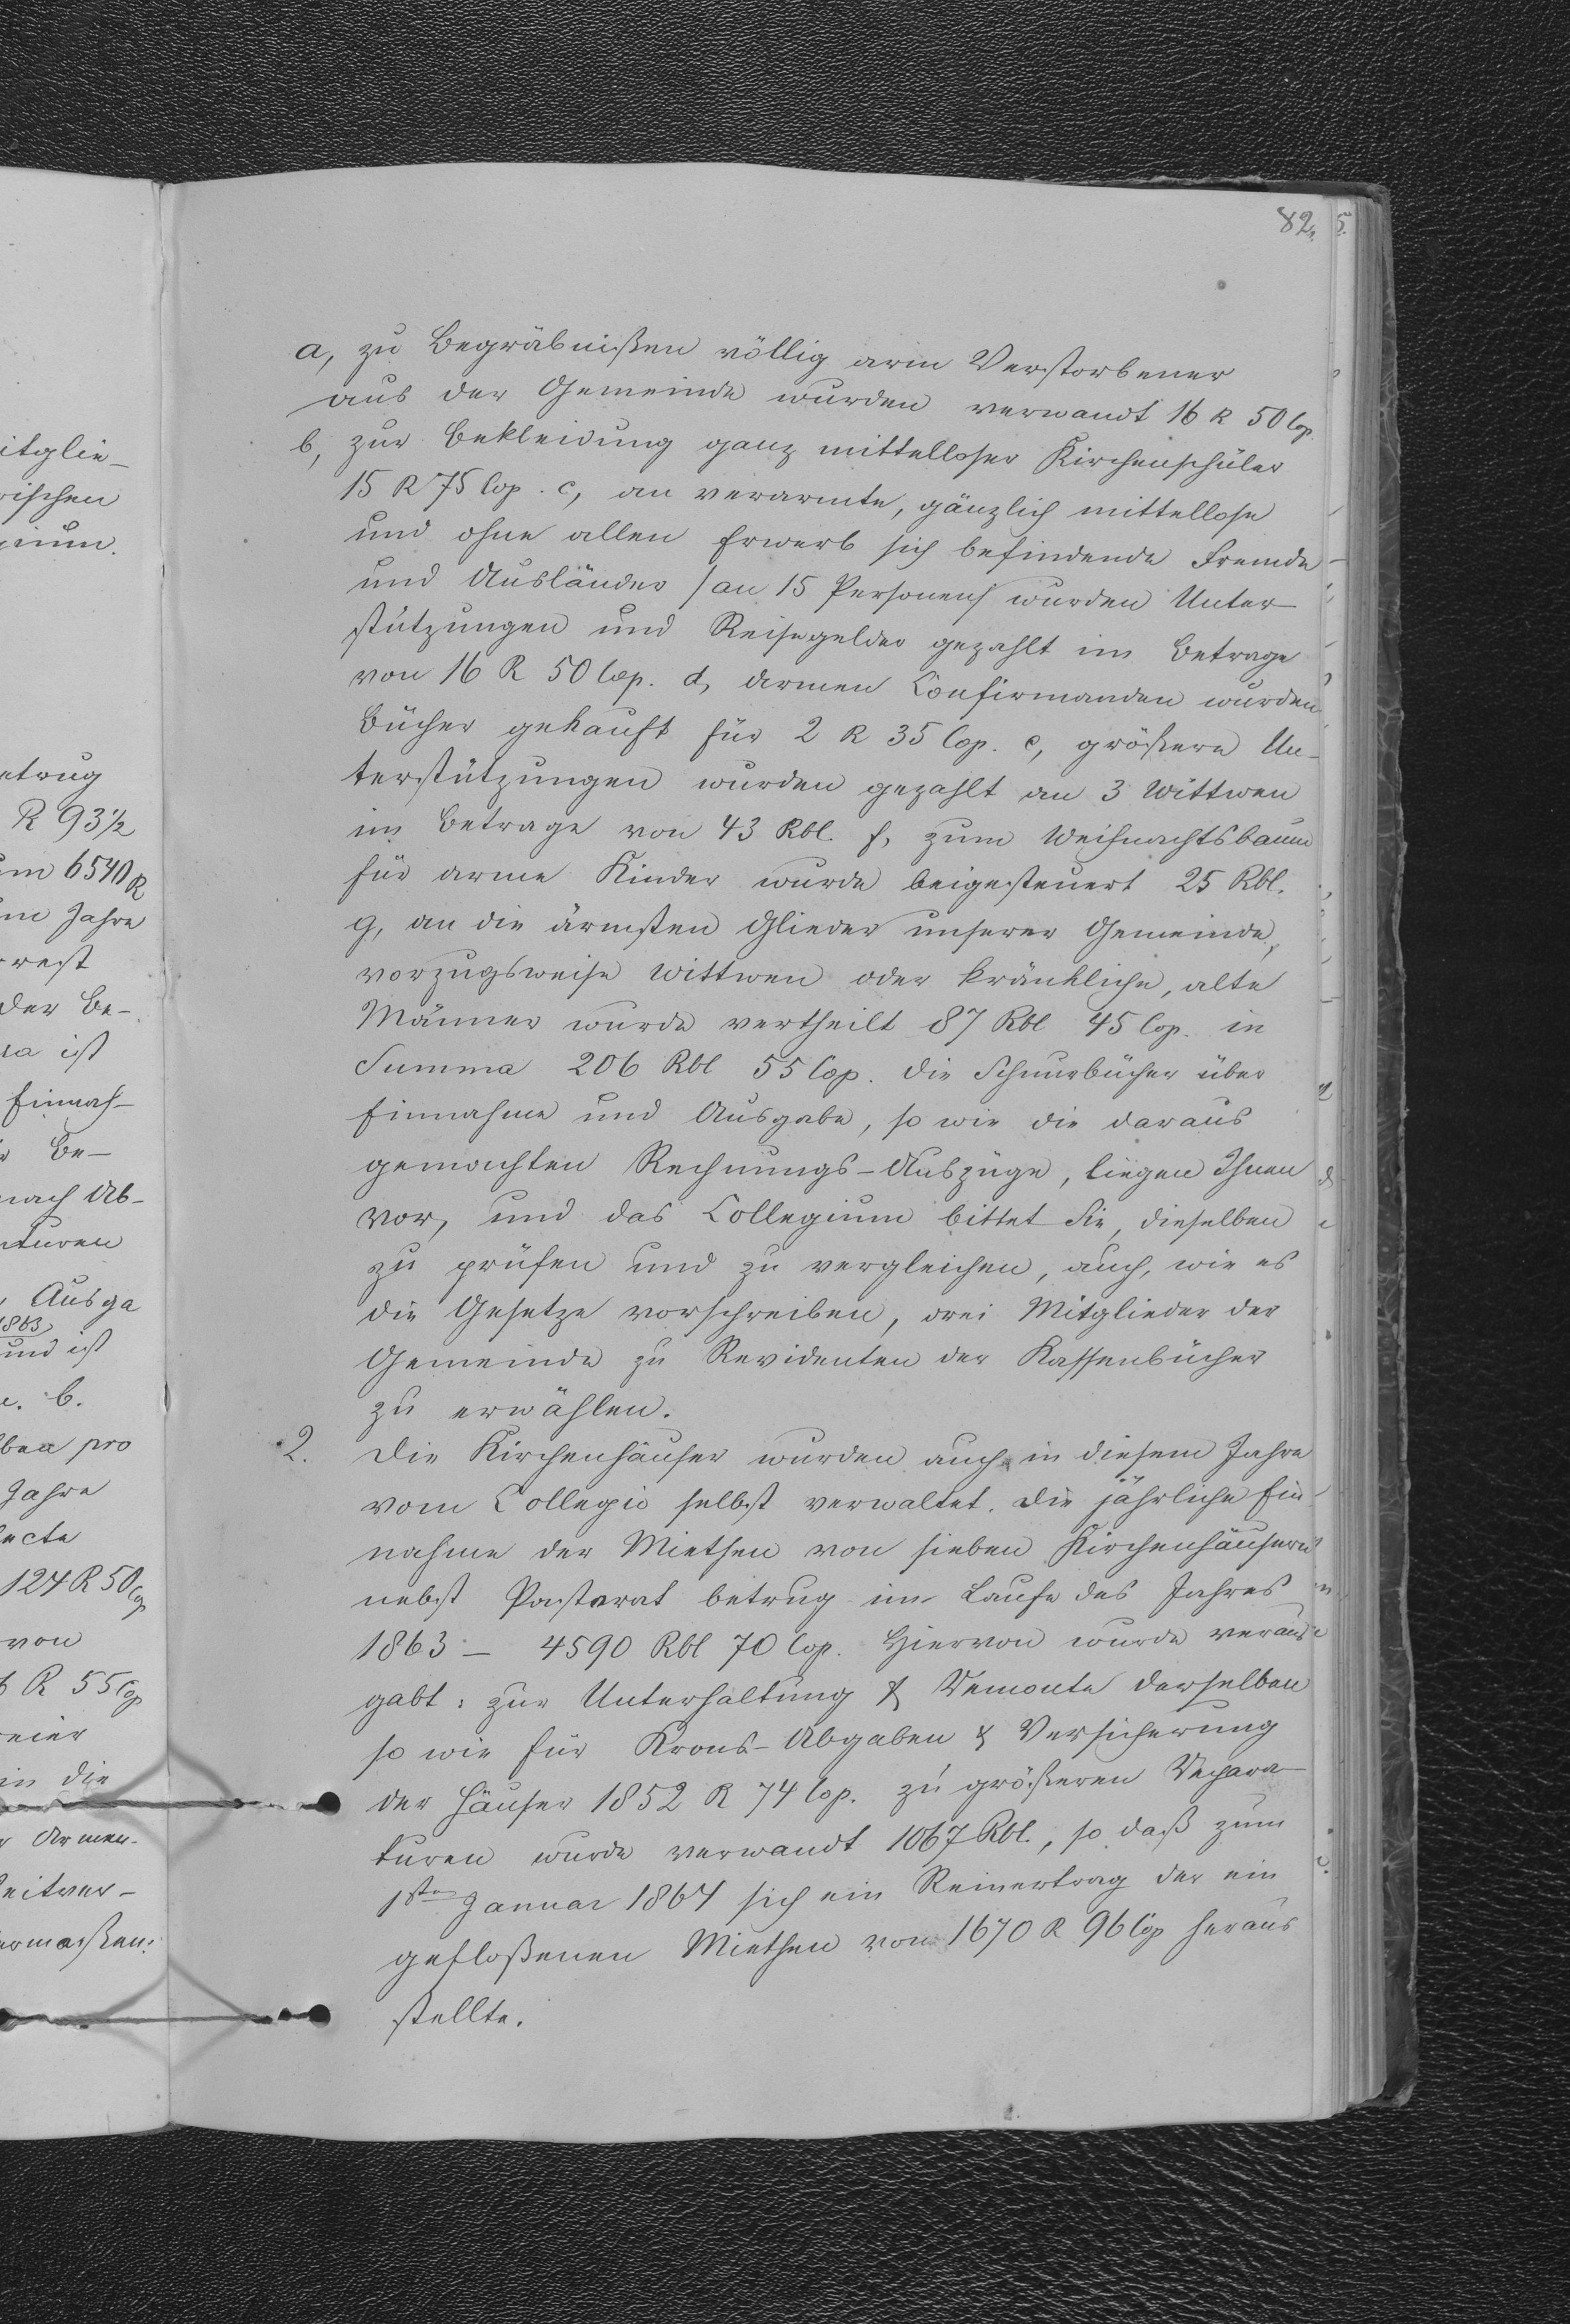 82.
a, zu Begräbnißen völlig arm Verstorbener
aus der Gemeinde wurden verwandt 16 R 50 Cop.
b, zur Bekleidung ganz mittelloser Kirchenschüler
15 R 75 Cop. c, an verarmte, gänzlich mittellose
und ohne allen Erwerb sich befindende Fremde
und Ausländer /an 15 Personen/ wurden Unter-
stützungen und Reisegelder gezahlt im Betrage
von 16 R 50 Cop. d, armen Confirmanden wurden
Bücher gekauft für 2 R 35 Cop. e, größere Un-
terstützungen wurden gezahlt an 3 Wittwen
im Betrage von 43 Rbl. f, zum Weihnachtsbaum
für arme Kinder wurde beigesteuert 25 Rbl.
g, an die ärmsten Glieder unserer Gemeinde,
vorzugsweise Wittwen oder kränkliche, alte
Männer wurde vertheilt 87 Rbl 45 Cop. in
Summa 206 Rbl 55 Cop. Die Schnurbücher über
Einnahme und Ausgabe, so wie die daraus
gemachten Rechnungs-Auszüge, liegen Ihnen
vor, und das Collegium bittet Sie, dieselben
zu prüfen und zu vergleichen, auch, wie es
die Gesetze vorschreiben, drei Mitglieder der
Gemeinde zu Revidenten der Kassenbücher
zu erwählen.
2. Die Kirchenhäuser wurden auch in diesem Jahre
vom Collegio selbst verwaltet. Die jährliche Ein-
nahme der Miethen von sieben Kirchenhäusern
nebst Pastorat betrug im Laufe des Jahres
1863 – 4590 Rbl 70 Cop. Hiervon wurde veraus
gabt: zur Unterhaltung & Remonte derselben
so wie für Krons-Abgaben & Versicherung
der Häuser 1852 R 74 Cop. zu größeren Repara-
turen wurde verwandt 1067 Rbl., so daß zum
1sten Januar 1864 sich ein Reinertrag der ein
gefloßenen Miethen von 1670 R 96 Cop heraus
stellte.